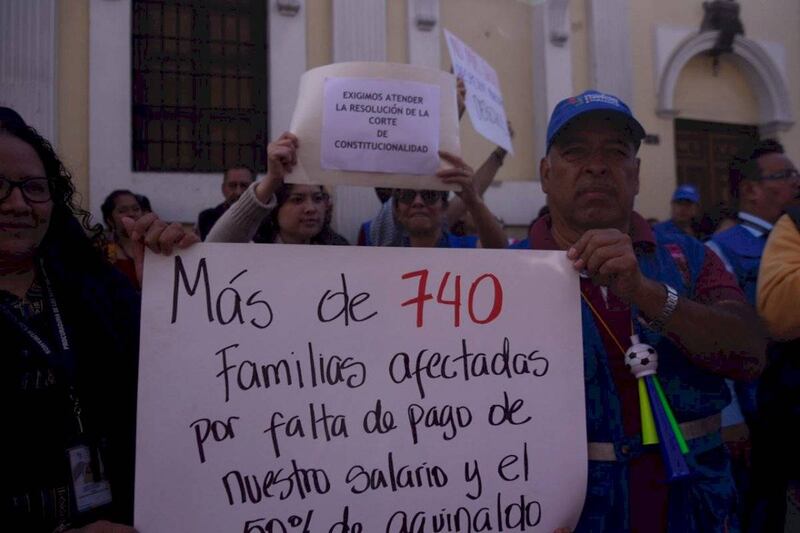 EXIGIMOS ATENDER
LA RESOLUCIÓN DE LA
CORTE
DE
CONSTITUCIONALIDAD
Más de 740
Familias afectadas
por falta de pago de
nuestro salario y el
50% de aguinaldo